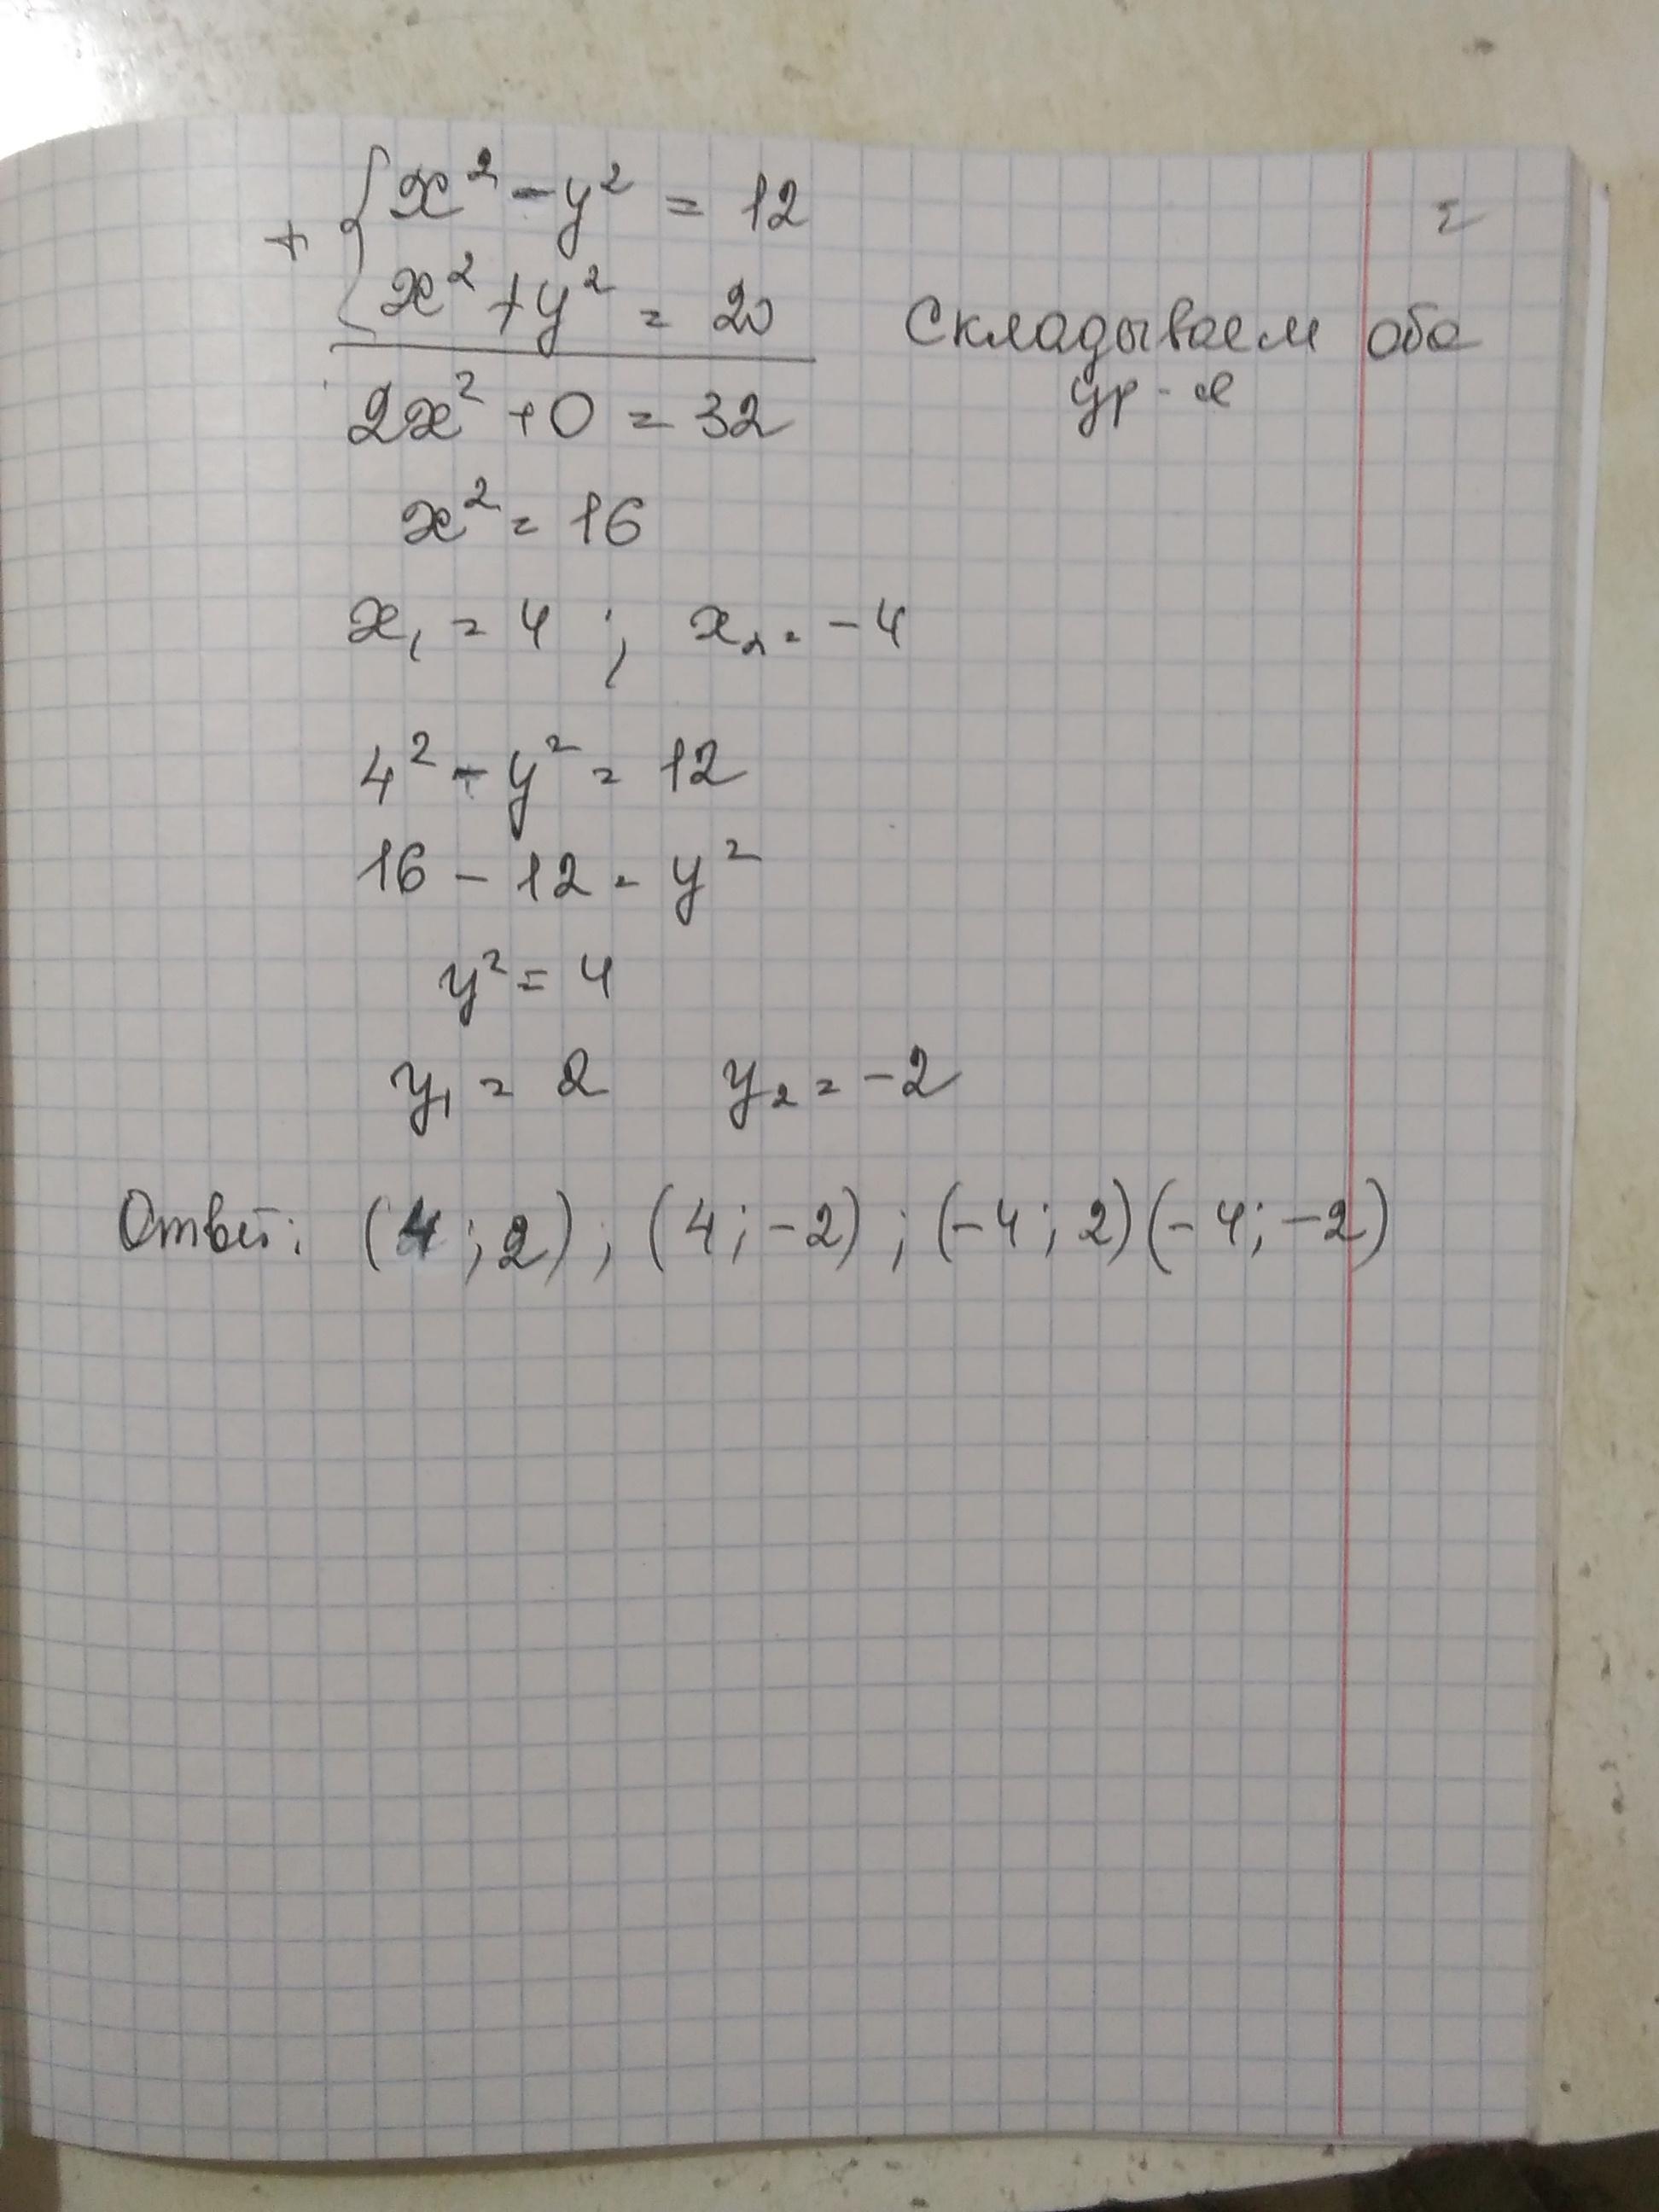 + { x² - y² = 12
x² + y² = 20 Складываем оба
ур-я
2x² + 0 = 32
x² = 16
x₁ = 4 ; x₂ = -4
4² - y² = 12
16 - 12 = y²
y² = 4
y₁ = 2 y₂ = -2
Ответ: (4 ; 2) ; (4 ; -2) ; (-4 ; 2) (-4 ; -2)